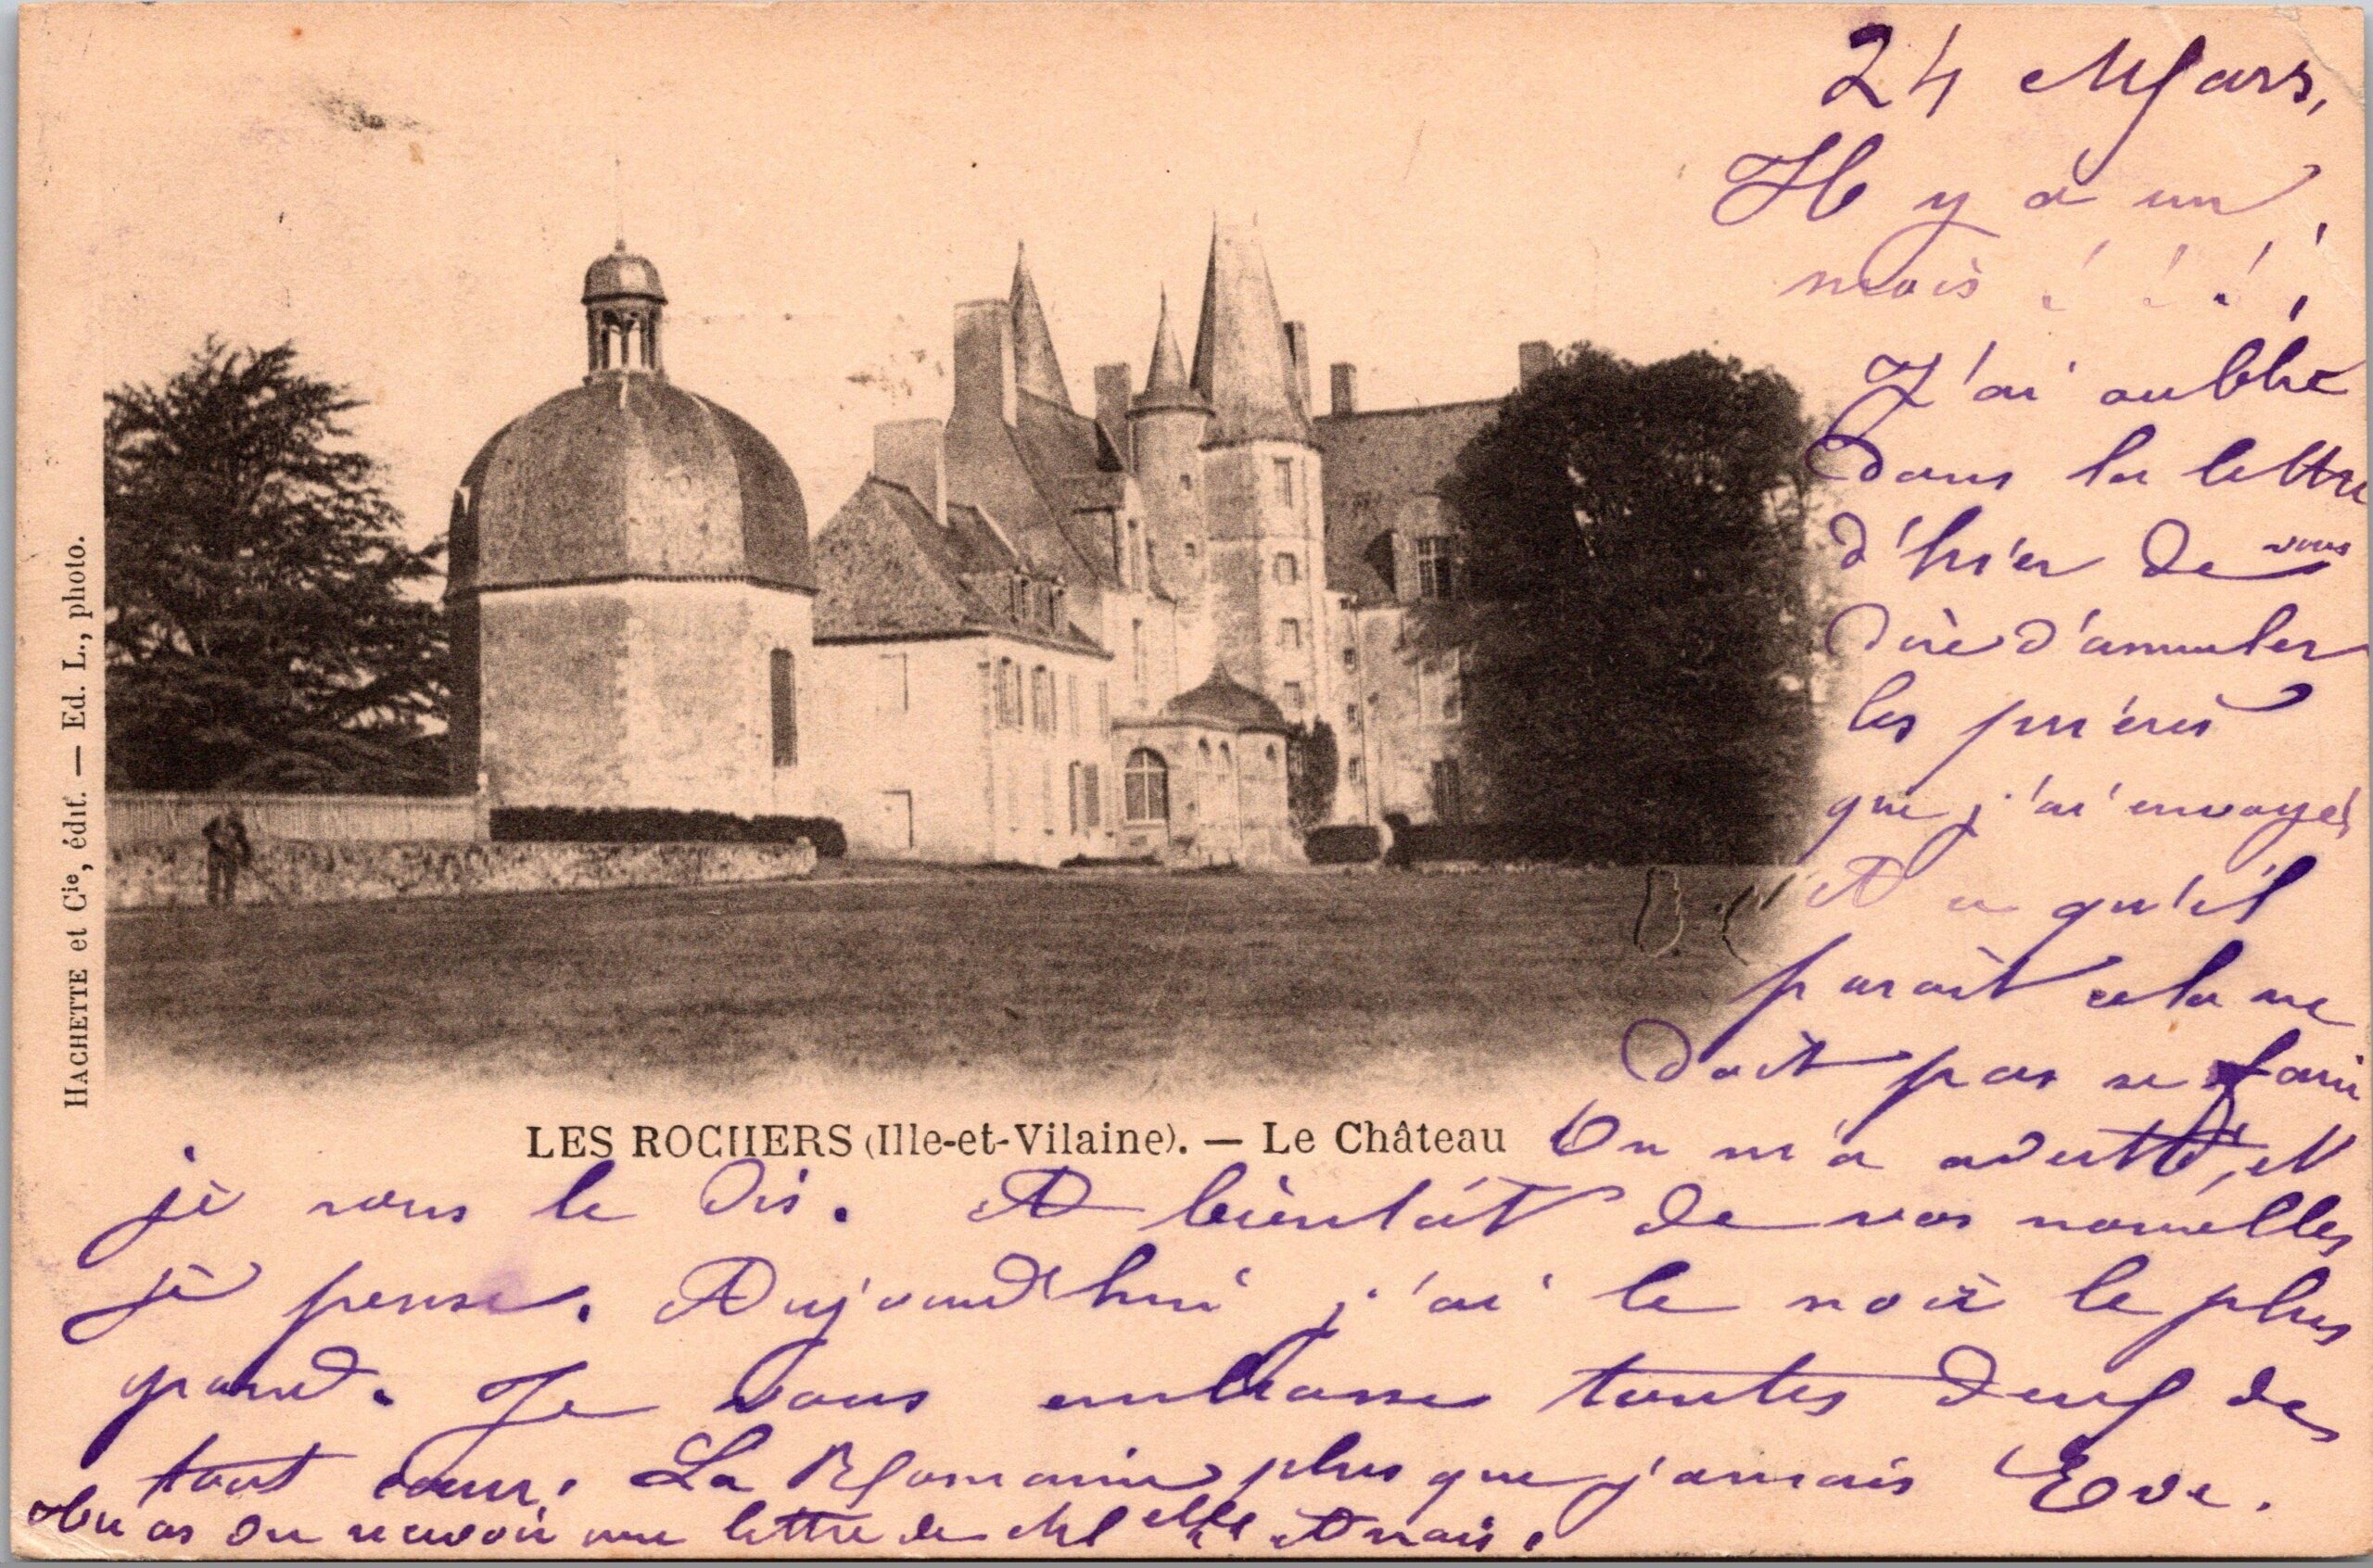 24 Mars,
Il y a un
mois ! ! ! !
J'ai oublié
dans la lettre
d'hier de vous
dire d'annuler
les prières
que j'ai envoyés
A ce qu'il
parait cela ne
doit pas se faire
HACHETTE et Cie, édit. — Ed. L., photo.
LES ROCHERS (Ille-et-Vilaine). — Le Château
On m'a avertit, et
je vous le dis. A bientôt de vos nouvelles
je pense. Aujourd'hui j'ai le noir le plus
grand. Je vous embrasse toutes deux de
tout cœur. La plus que jamais Eve.
Tu as du recevoir une lettre de Mlle Anaïs.